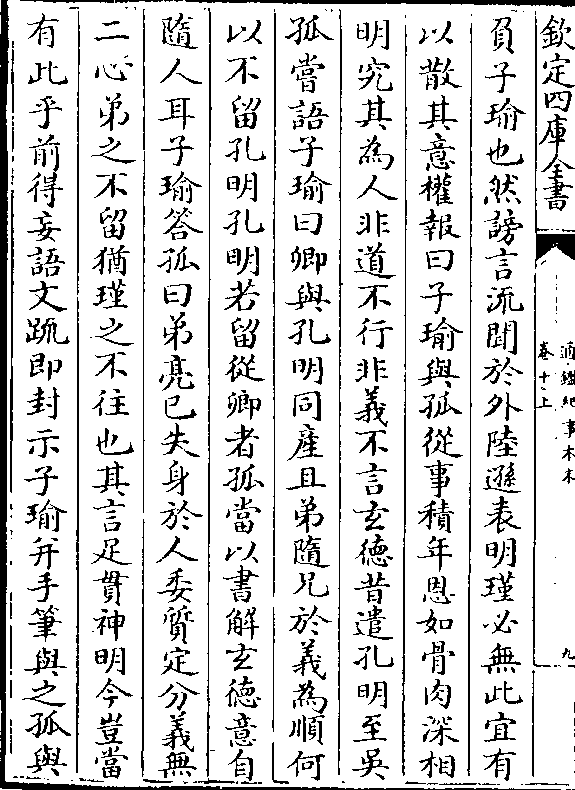 欽定四庫全書
通鑑紀事本末
卷十上
九
負子瑜也然謗言流聞於外陸遜表明瑾必無此宜有
以散其意權報曰子瑜與孤從事積年恩如骨肉深相
明究其為人非道不行非義不言玄德昔遣孔明至吳
孤嘗語子瑜曰卿與孔明同產且弟隨兄於義為順何
以不留孔明孔明若留從卿者孤當以書解玄德意自
隨人耳子瑜答孤曰弟亮已失身於人委質定分義無
二心弟之不留猶瑾之不往也其言足貫神明今豈當
有此乎前得妄語文疏即封示子瑜并手筆與之孤與